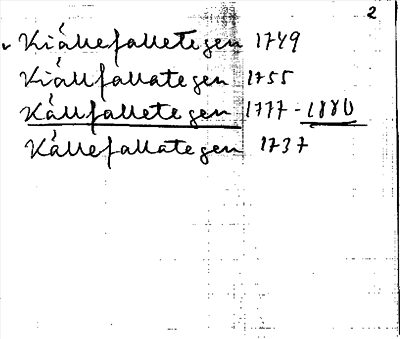 2
Kiállefalletegen 1749
Kiállfallategen 1755
Kállfalletegen 1777-1880
Kállefallategen 1737